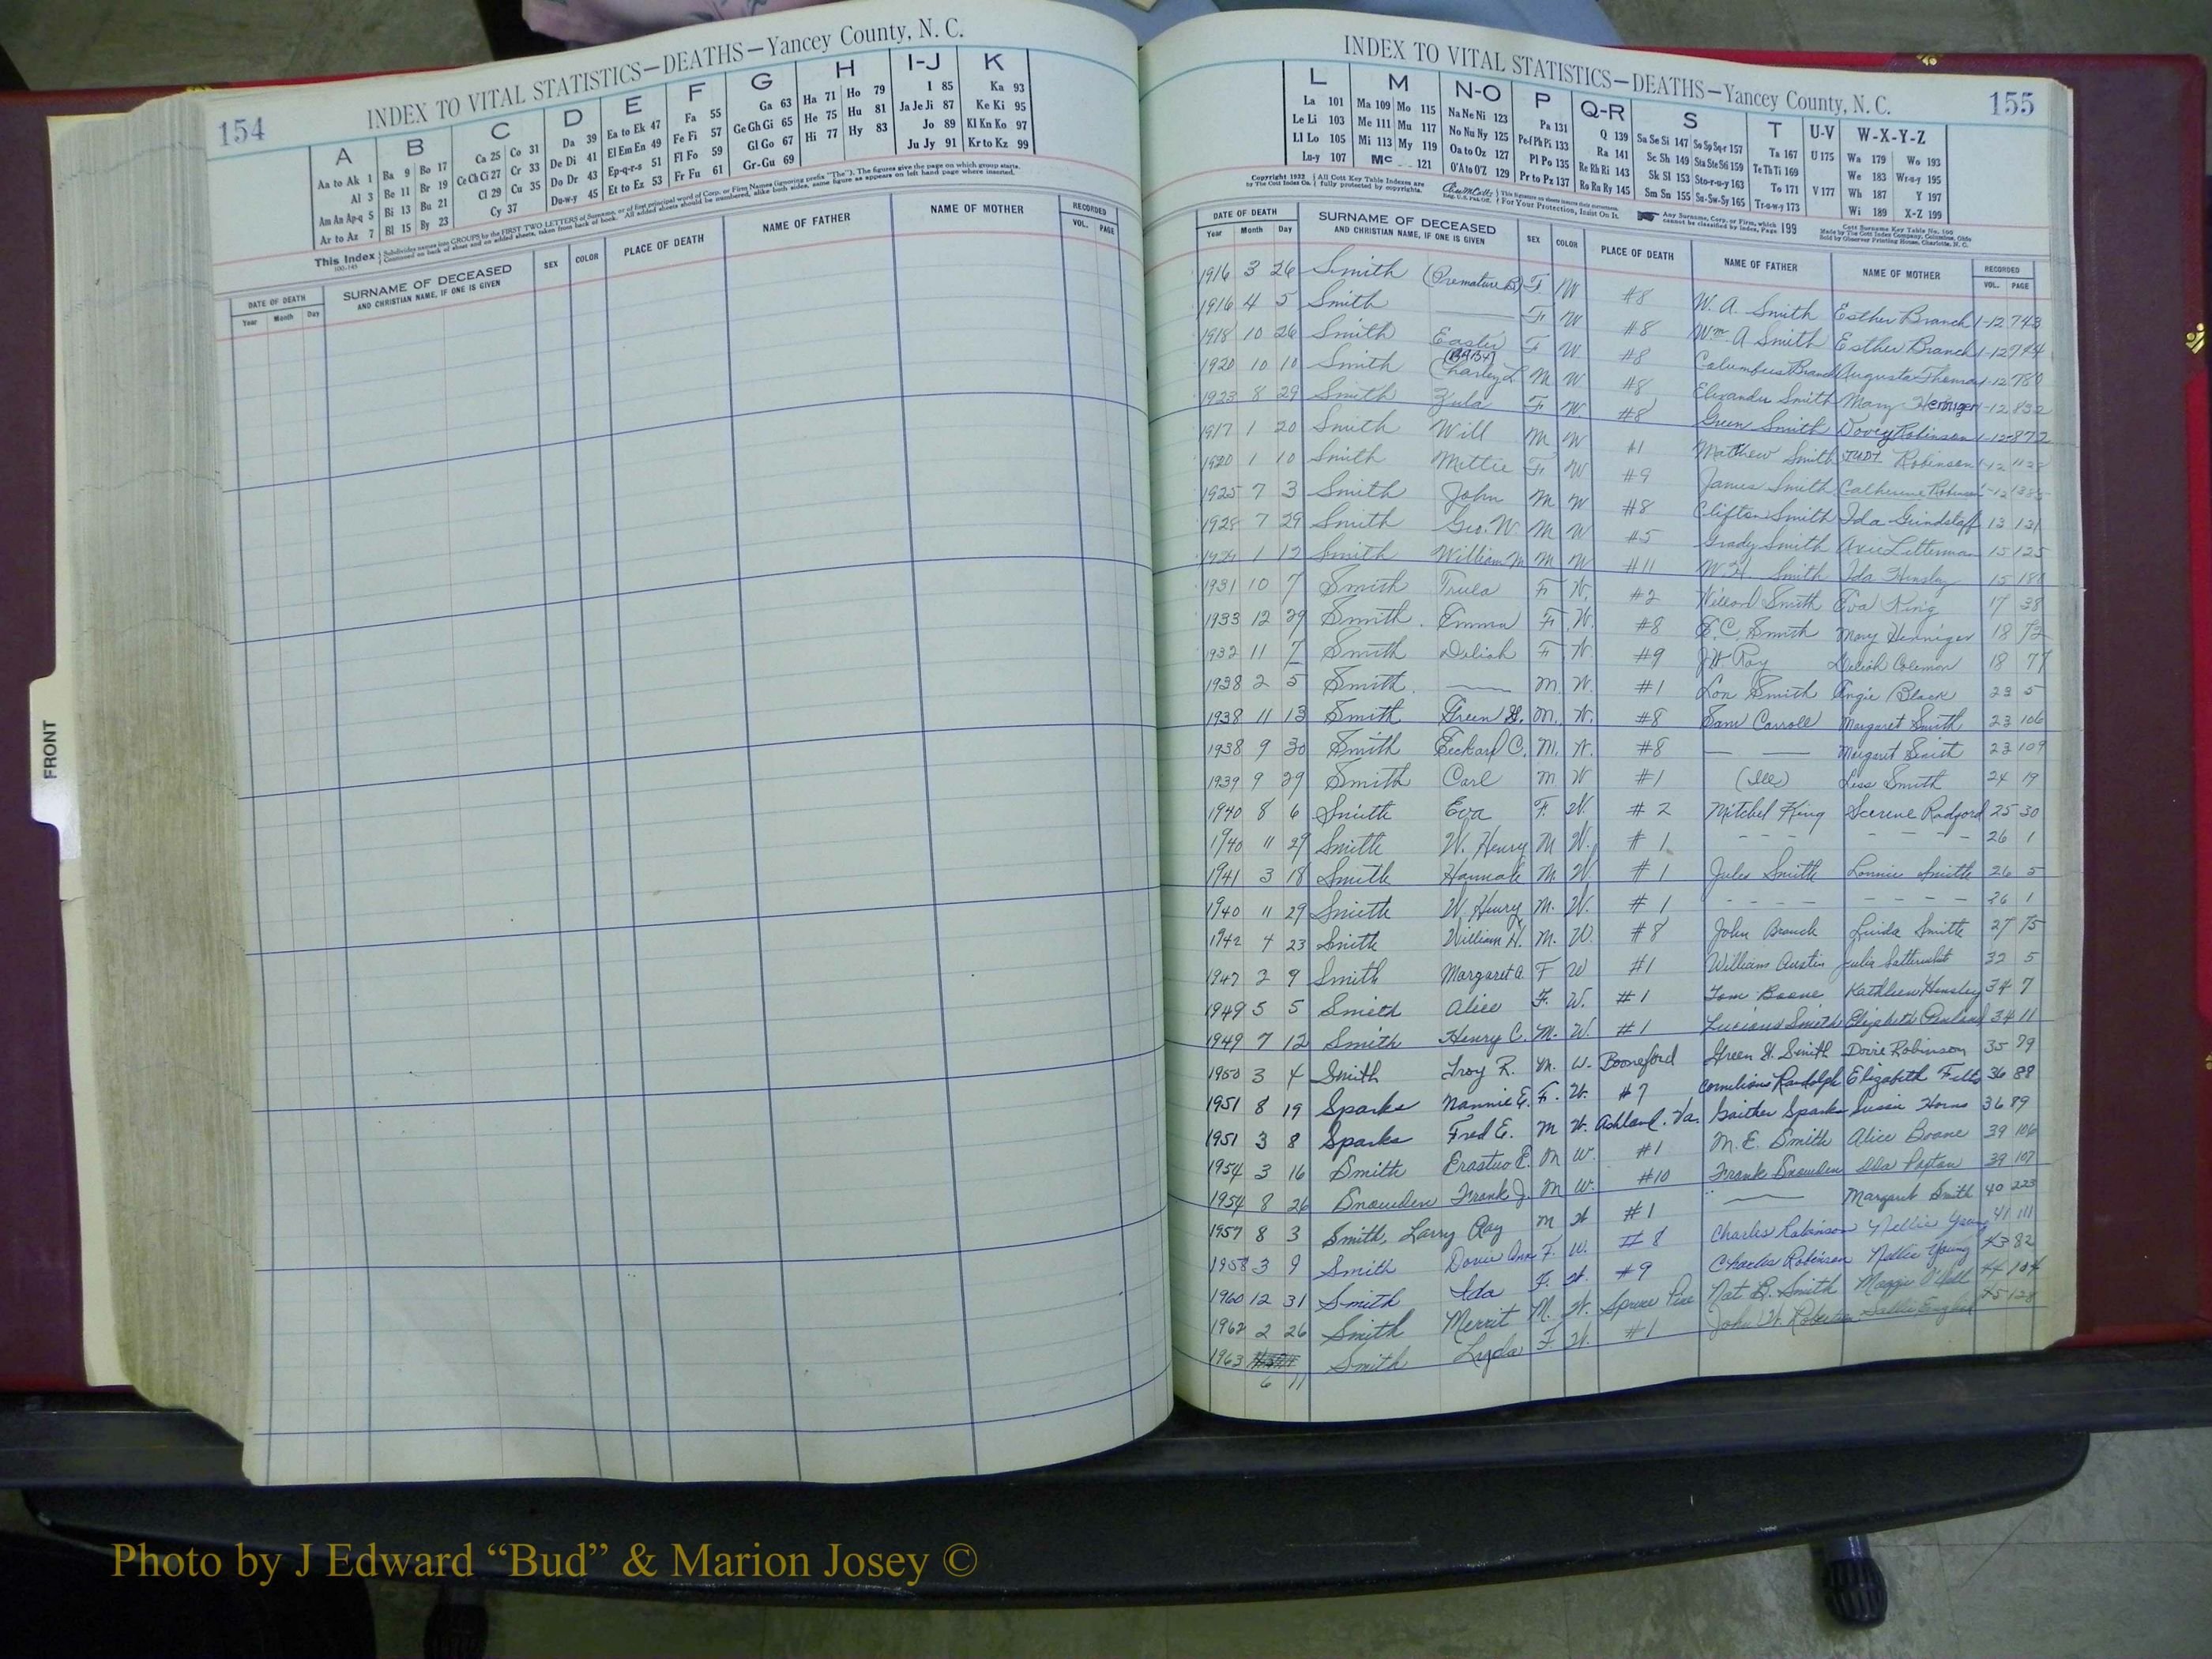 154
INDEX TO VITAL STATISTICS—DEATHS—Yancey County, N. C.
A B C D E F G H I-J K
Aa to Ak 1 Ba 9 Bo 17 Ca 25 Co 31 Da 39 Ea to Ek 47 Fa 55 Ga 63 Ha 71 Ho 79 I 85 Ka 93
Al 3 Be 11 Br 19 Ce Ch Ci 27 Cr 33 De Di 41 El Em En 49 Fe Fi 57 Ge Gh Gi 65 He 75 Hu 81 Ja Je Ji 87 Ke Ki 95
Am An Ap-q 5 Bi 13 Bu 21 Cl 29 Cu 35 Do Dr 43 Ep-q-r-s 51 Fl Fo 59 Gl Go 67 Hi 77 Hy 83 Jo 89 Kl Kn Ko 97
Ar to Az 7 Bl 15 By 23 Cy 37 Du-w-y 45 Et to Ez 53 Fr Fu 61 Gr-Gu 69 Ju Jy 91 Kr to Kz 99
This Index Subdivides names into GROUPS by the FIRST TWO LETTERS of Surname, or of first principal word of Corp. or Firm Names (ignoring prefix "The"). The figures give the page on which group starts.
Continued on back of sheet and on added sheets, taken from back of book. All added sheets should be numbered, alike both sides, same figure as appears on left hand page where inserted.
DATE OF DEATH SURNAME OF DECEASED SEX COLOR PLACE OF DEATH NAME OF FATHER NAME OF MOTHER RECORDED
Year Month Day AND CHRISTIAN NAME, IF ONE IS GIVEN VOL. PAGE
FRONT
INDEX TO VITAL STATISTICS—DEATHS—Yancey County, N. C.
155
L M N-O P Q-R S T U-V W-X-Y-Z
La 101 Ma 109 Mo 115 Na Ne Ni 123 Pa 131 Q 139 Sa Se Si 147 So Sp Sq-r 157 Ta 167 U 175 Wa 179 Wo 193
Le Li 103 Me 111 Mu 117 No Nu Ny 125 Pe-f Ph Pi 133 Ra 141 Sc Sh 149 Sta Ste Sti 159 Te Th Ti 169 We 183 Wr-u-y 195
Ll Lo 105 Mi 113 My 119 Oa to Oz 127 Pl Po 135 Re Rh Ri 143 Sk Sl 153 Sto-r-u-y 163 To 171 V 177 Wh 187 Y 197
Lu-y 107 Mc 121 O'A to O'Z 129 Pr to Pz 137 Ro Ru Ry 145 Sm Sn 155 Su-Sw-Sy 165 Tr-u-w-y 173 Wi 189 X-Z 199
Copyright 1932 by The Cott Index Co. All Cott Key Table Indexes are fully protected by copyrights. For Your Protection, Insist On It. Any Surname, Corp. or Firm, which cannot be classified by Index, Page 199
DATE OF DEATH SURNAME OF DECEASED SEX COLOR PLACE OF DEATH NAME OF FATHER NAME OF MOTHER RECORDED
Year Month Day AND CHRISTIAN NAME, IF ONE IS GIVEN VOL. PAGE
1916 3 26 Smith (Premature B) F W #8 W. A. Smith Esther Branch 1-12 743
1916 4 5 Smith —— F W #8 Wm A Smith Esther Branch 1-12 744
1918 10 26 Smith Easter F W #8 Columbus Branch Augusta Thomas 1-12 780
1920 10 10 Smith (BABY) Charley L M W #8 Elexander Smith Mary 1-12 832
1923 8 29 Smith Zula F W #8 Green Smith Dovey Robinson 1-12 872
1917 1 20 Smith Will M W #1 Mathew Smith Judy Robinson 1-12
1920 1 10 Smith Mettie F W #9 James Smith Catherine 1-12
1925 7 3 Smith John M W #8 Clifton Smith Ida Grindstaff 13 121
1928 7 29 Smith Geo. W. M W #5 Grady Smith Axie Letterman 15 125
1929 1 12 Smith William M M W #11 W. H. Smith Ida Hensley 15
1931 10 7 Smith Trula F W. #2 Willard Smith Eva King 17 38
1933 12 29 Smith Emma F. W. #8 E. C. Smith Mary Henniger 18 72
1932 11 7 Smith Deliah F W. #9 J W Ray Deliah Colemon 18 77
1938 2 5 Smith —— M. W. #1 Lon Smith Angie Black 23 5
1938 11 13 Smith Green H. M. W. #8 Sam Carroll Margaret Smith 23 106
1938 9 30 Smith Eckard C. M. W. #8 — — Margaret Smith 23 109
1939 9 29 Smith Carl M. W #1 (Ill) Liss Smith 24 19
1940 8 6 Smith Eva F. W. #2 Mitchel King Radford 25 30
1940 11 29 Smith W. Henry M W. #1 - - - - - - - - 26 1
1941 3 18 Smith Hannah M. W. #1 Jules Smith Lonnie Smith 26 5
1940 11 29 Smith W. Henry M. W. #1 - - - - - - - - 26 1
1942 4 23 Smith William H. M. W. #8 John Branch Linda Smith 27 75
1947 2 9 Smith Margaret A. F W #1 William Austin Julia 32 5
1949 5 5 Smith Alice F. W. #1 Tom Boone Kathleen Hensley 34 7
1949 7 12 Smith Henry C. M. W. #1 Lucious Smith Elizabeth 34 11
1950 3 4 Smith Troy R. M. W. Booneford Green H. Smith Dovie Robinson 35 79
1951 8 19 Sparks Nannie E. F. W. #7 Cornelious Randolph Elizabeth 36 88
1951 3 8 Sparks Fred E. M W. Ashland, Va. Gaither Sparks Susie Horne 36 89
1954 3 16 Smith Erastus E. M W. #1 M. E. Smith Alice Boone 39 106
1954 8 26 Snowden Frank J. M W. #10 Frank Snowden Ida 39 107
1957 8 3 Smith, Larry Ray M W #1 —— Margaret Smith 40 223
1958 3 9 Smith Dovie Ann F. W. #8 Charles Robinson Nellie Young 41 111
1960 12 31 Smith Ida F. W. #9 Charles Robinson Nellie Young 43 82
1962 2 26 Smith Merrit M. W. Spruce Pine Nat B. Smith Maggie 44 104
1963 6 11 Smith Lyda F. W. #1 John W. Sallie English 45 128
Photo by J Edward “Bud” & Marion Josey ©